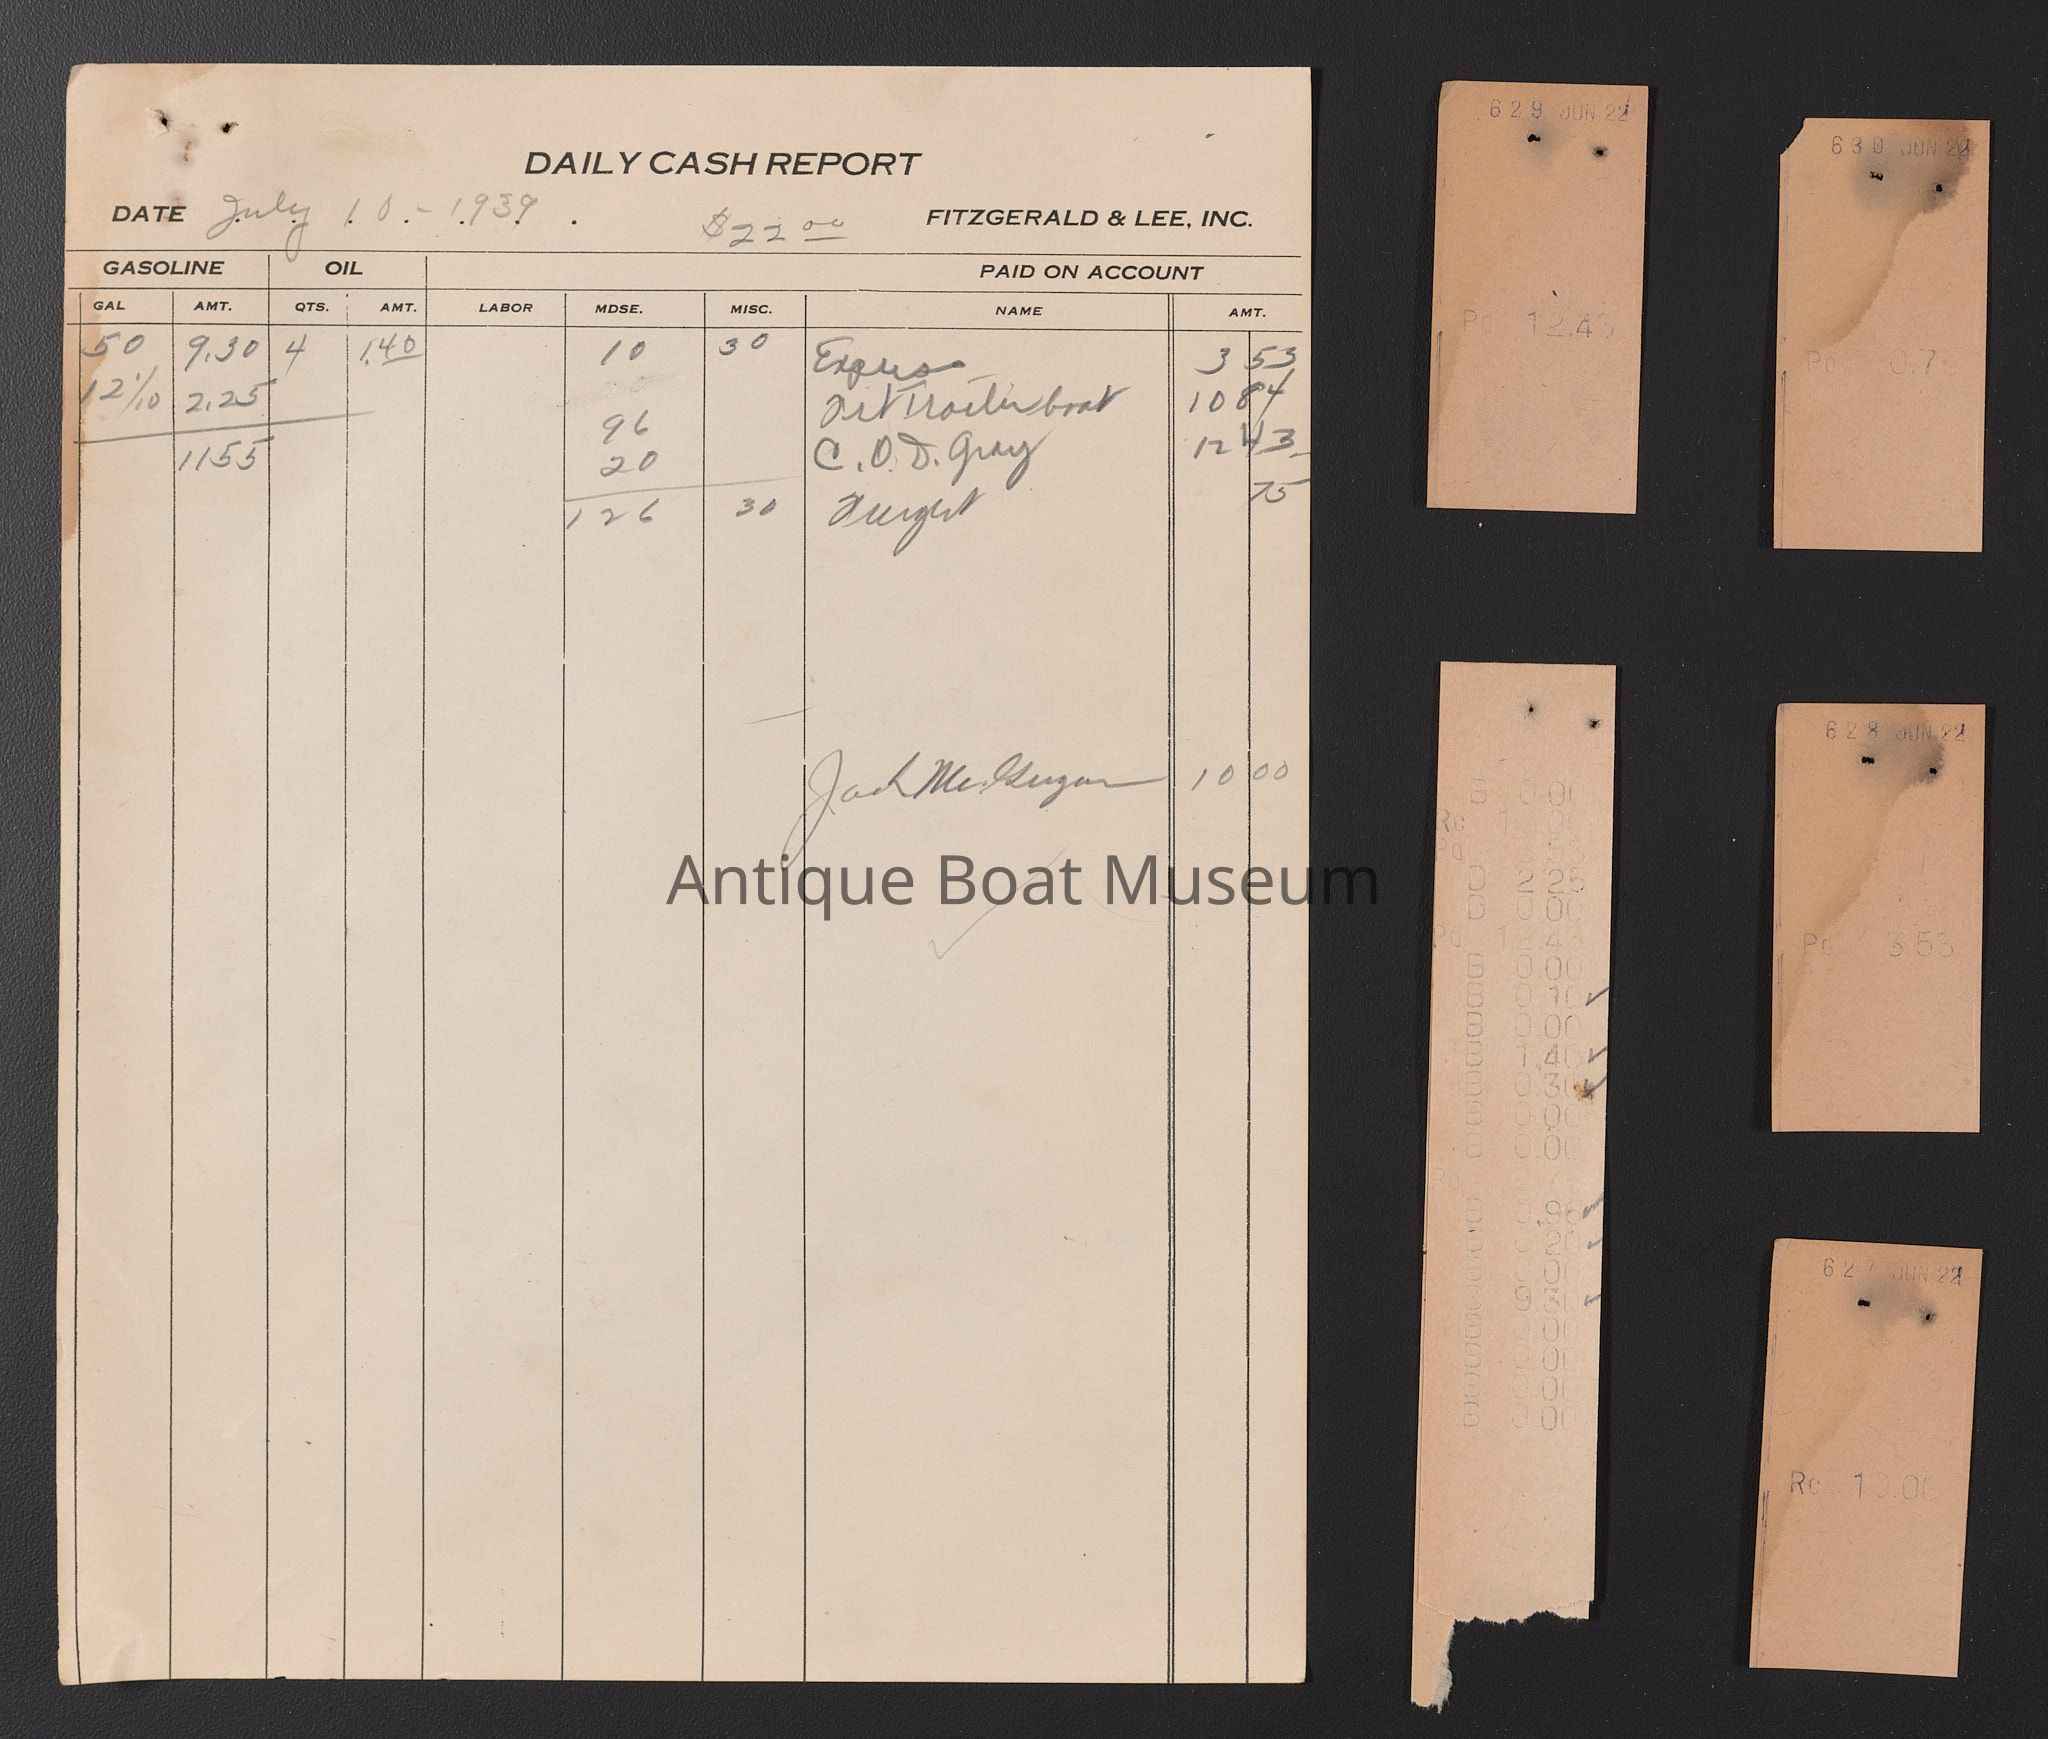 DAILY CASH REPORT
DATE July 10 - 1939 . $22 00 FITZGERALD & LEE, INC.
GASOLINE OIL PAID ON ACCOUNT
GAL AMT. QTS. AMT. LABOR MDSE. MISC. NAME AMT.
50 9.30 4 1.40 10 30 Express 3 53
12 1/10 2.25 boat 10 84
96
1155 20 C.O.D. Gray 12 43
126 30 Freight 75
Jack 10 00
Antique Boat Museum
629 JUN 22
Pd 12.43
630 JUN 22
Pd 0.7
B 0.00
Rc 1
Pd
D 2.25
B 0.00
Pd 12.43
B 0.00
B 0.10 ✓
B 0.00
B 1.40 ✓
B 0.30 ✓
B 0.00
B 0.00
Pd
0.96 ✓
0.20 ✓
0.00
9.30 ✓
0.00
B 0.00
0.00
B 0.00
628 JUN 22
Pd 3.53
627 JUN 22
Rc 10.00